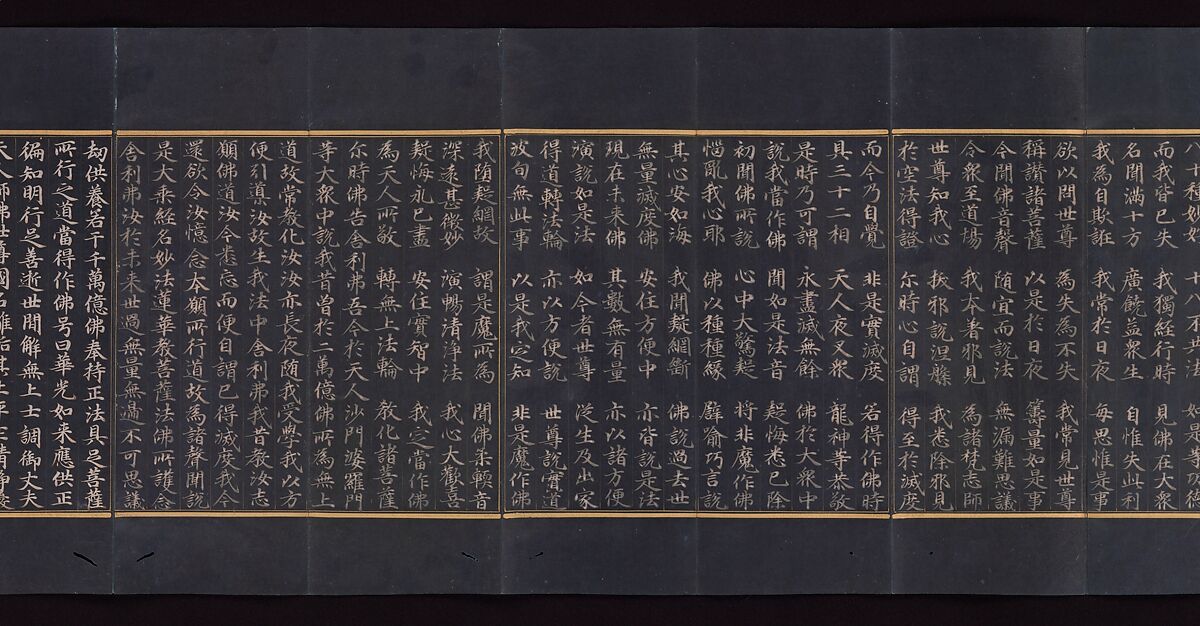 而我皆已失　我獨經行時　見佛在大眾
名聞滿十方　廣饒益眾生　自惟失此利
我為自欺誑　我常於日夜　每思惟是事
欲以問世尊　為失為不失　我常見世尊
稱讚諸菩薩　以是於日夜　籌量如是事
今聞佛音聲　随宜而說法　無漏難思議
令眾至道場　我本著邪見　為諸梵志師
世尊知我心　拔邪說涅槃　我悉除邪見
於空法得證　尔時心自謂　得至於滅度
而今乃自覺　非是實滅度　若得作佛時
具三十二相　天人夜叉眾　龍神等恭敬
是時乃可謂　永盡滅無餘　佛於大眾中
說我當作佛　聞如是法音　疑悔悉已除
初聞佛所說　心中大驚疑　將非魔作佛
惱亂我心耶　佛以種種緣　譬喻巧言說
其心安如海　我聞疑網斷　佛說過去世
無量滅度佛　安住方便中　亦皆說是法
現在未來佛　其數無有量　亦以諸方便
演說如是法　如今者世尊　從生及出家
得道轉法輪　亦以方便說　世尊說實道
波旬無此事　以是我定知　非是魔作佛
我墮疑網故　謂是魔所為　聞佛柔軟音
深遠甚微妙　演暢清淨法　我心大歡喜
疑悔永已盡　安住實智中　我定當作佛
為天人所敬　轉無上法輪　教化諸菩薩
尔時佛告舍利弗吾今於天人沙門婆羅門
等大眾中說我昔曾於二萬億佛所為無上
道故常教化汝汝亦長夜随我受學我以方
便引導汝故生我法中舍利弗我昔教汝志
願佛道汝今悉忘而便自謂已得滅度我今
還欲令汝憶念本願所行道故為諸聲聞說
是大乘經名妙法蓮華教菩薩法佛所護念
舍利弗汝於未來世過無量無邊不可思議
劫供養若干千萬億佛奉持正法具足菩薩
所行之道當得作佛号曰華光如來應供正
徧知明行足善逝世間解無上士調御丈夫
天人師佛世尊國名離垢其土平正清淨嚴